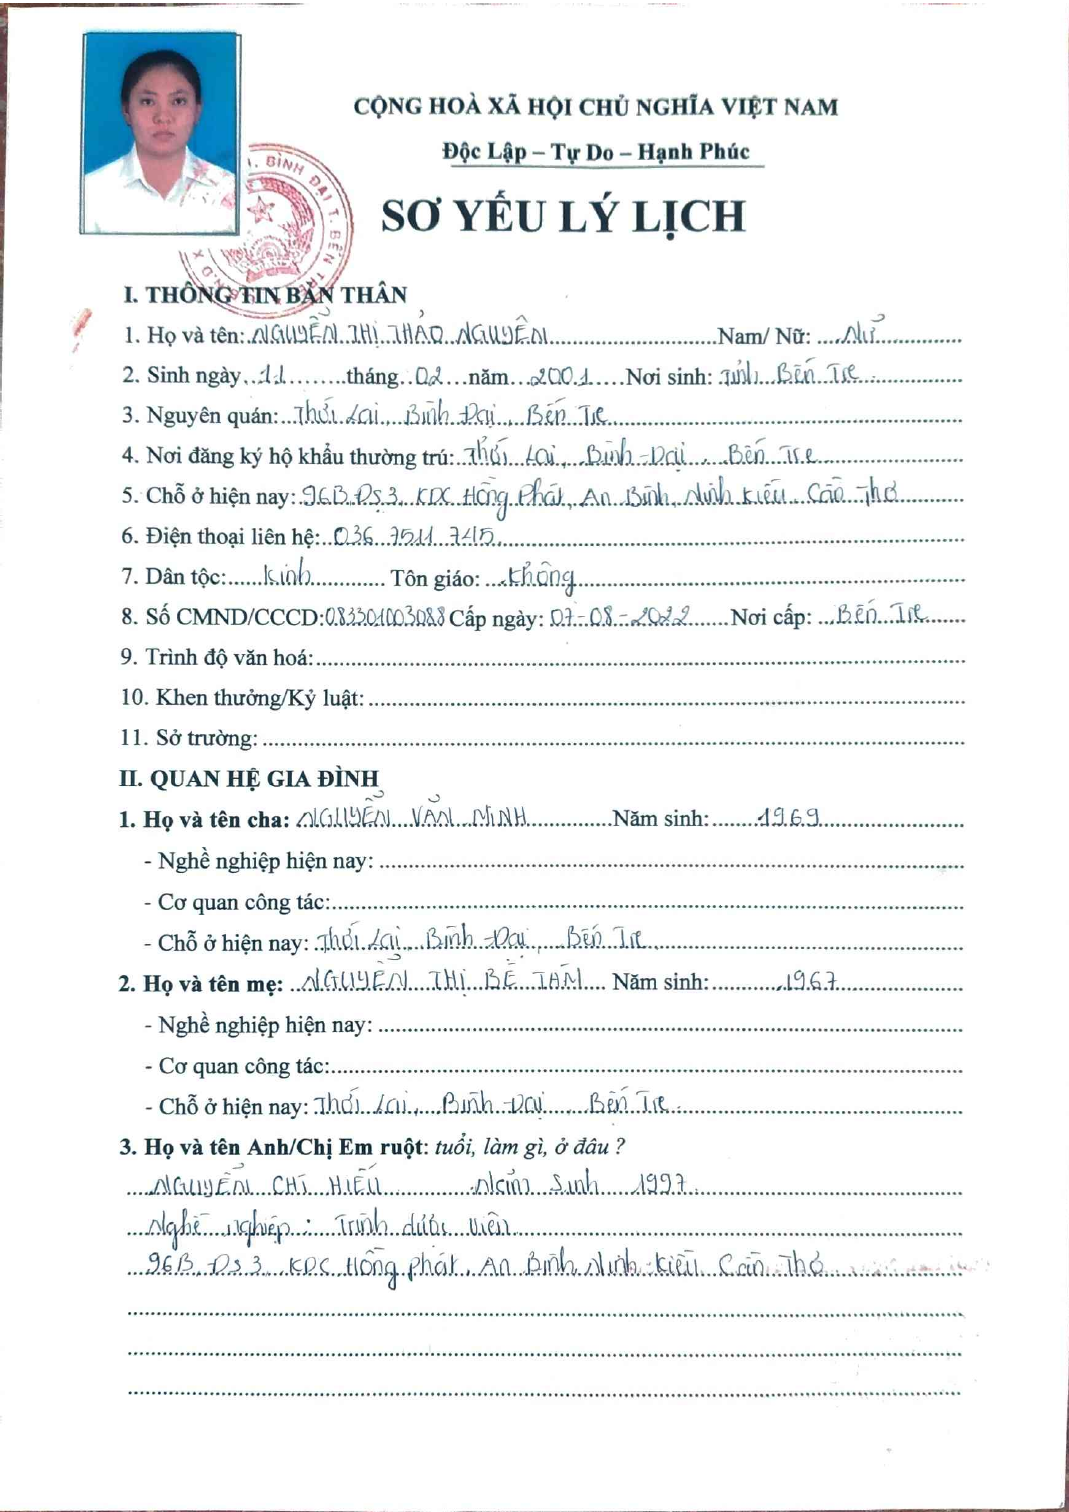 CỘNG HOÀ XÃ HỘI CHỦ NGHĨA VIỆT NAM
Độc Lập – Tự Do – Hạnh Phúc
BÌNH ĐẠI T. BẾN TRE
SƠ YẾU LÝ LỊCH
I. THÔNG TIN BẢN THÂN
1. Họ và tên: NGUYỄN THỊ THẢO NGUYÊN Nam/ Nữ: Nữ
2. Sinh ngày 11 tháng 02 năm 2001 Nơi sinh: Tỉnh Bến Tre
3. Nguyên quán: Thới Lai, Bình Đại, Bến Tre
4. Nơi đăng ký hộ khẩu thường trú: Thới Lai, Bình Đại, Bến Tre
5. Chỗ ở hiện nay: 96B Đs 3, KDC Hồng Phát, An Bình, Ninh Kiều Cần Thơ
6. Điện thoại liên hệ: 036 7511 745
7. Dân tộc: Kinh Tôn giáo: Không
8. Số CMND/CCCD: 083301003088 Cấp ngày: 07-08-2022 Nơi cấp: Bến Tre
9. Trình độ văn hoá:
10. Khen thưởng/Kỷ luật:
11. Sở trường:
II. QUAN HỆ GIA ĐÌNH
1. Họ và tên cha: NGUYỄN VĂN MINH Năm sinh: 1969
- Nghề nghiệp hiện nay:
- Cơ quan công tác:
- Chỗ ở hiện nay: Thới Lai, Bình Đại, Bến Tre
2. Họ và tên mẹ: NGUYỄN THỊ BÉ TÁM Năm sinh: 1967
- Nghề nghiệp hiện nay:
- Cơ quan công tác:
- Chỗ ở hiện nay: Thới Lai, Bình Đại, Bến Tre
3. Họ và tên Anh/Chị Em ruột: tuổi, làm gì, ở đâu ?
NGUYỄN CHÍ HIẾU Năm Sinh 1997
Nghề nghiệp: Trình dược viên
96B Đs 3 KDC Hồng phát, An Bình Ninh Kiều Cần Thơ